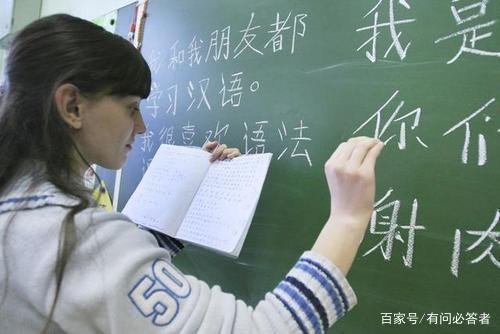 我和我朋友都
学习汉语。
我很喜欢语法
我是
你们
射
50
百家号/有问必答者